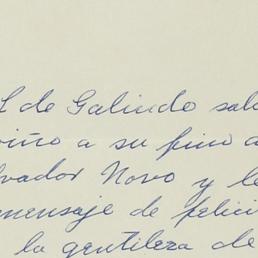 L de Galindo salu
riño a su fino a
lvador Novo y le
mensaje de felici
la gentileza de